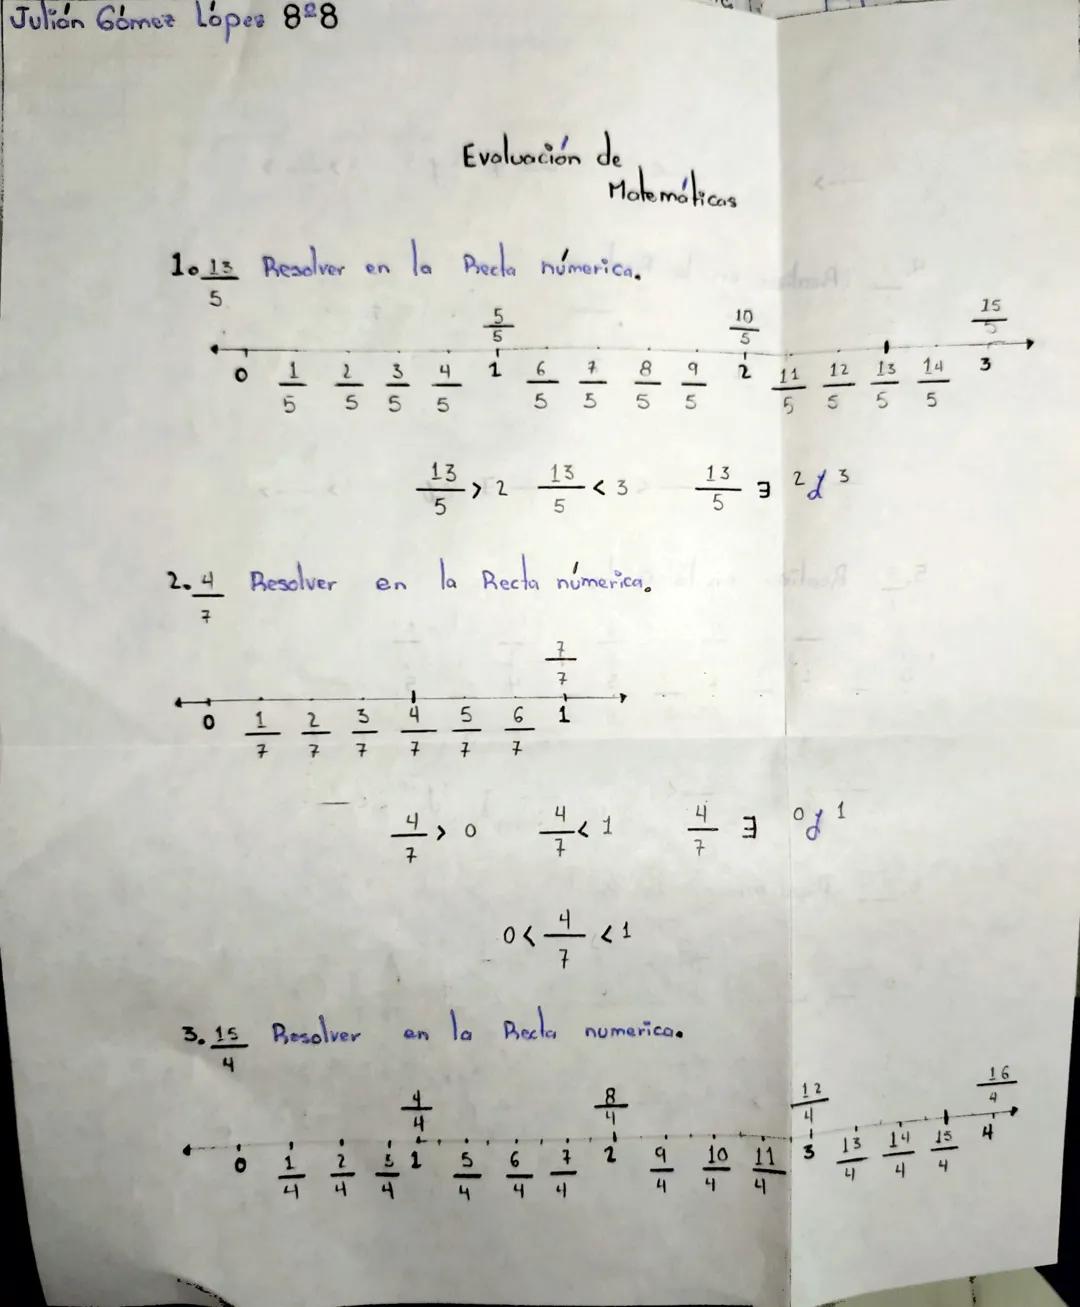 Julián Gómez López 8º8
Evaluación de
Matemáticas
1. 13/5 Resolver en la Recta númerica.
5/5 10/5 15/5
0 1/5 2/5 3/5 4/5 1 6/5 7/5 8/5 9/5 2 11/5 12/5 13/5 14/5 3
13/5 > 2 13/5 < 3 13/5 ∃ 2 y 3
2. 4/7 Resolver en la Recta númerica.
7/7
0 1/7 2/7 3/7 4/7 5/7 6/7 1
4/7 > 0 4/7 < 1 4/7 ∃ 0 y 1
0 < 4/7 < 1
3. 15/4 Resolver en la Recta numerica.
4/4 8/4 12/4 16/4
0 1/4 2/4 3/4 1 5/4 6/4 7/4 2 9/4 10/4 11/4 3 13/4 14/4 15/4 4